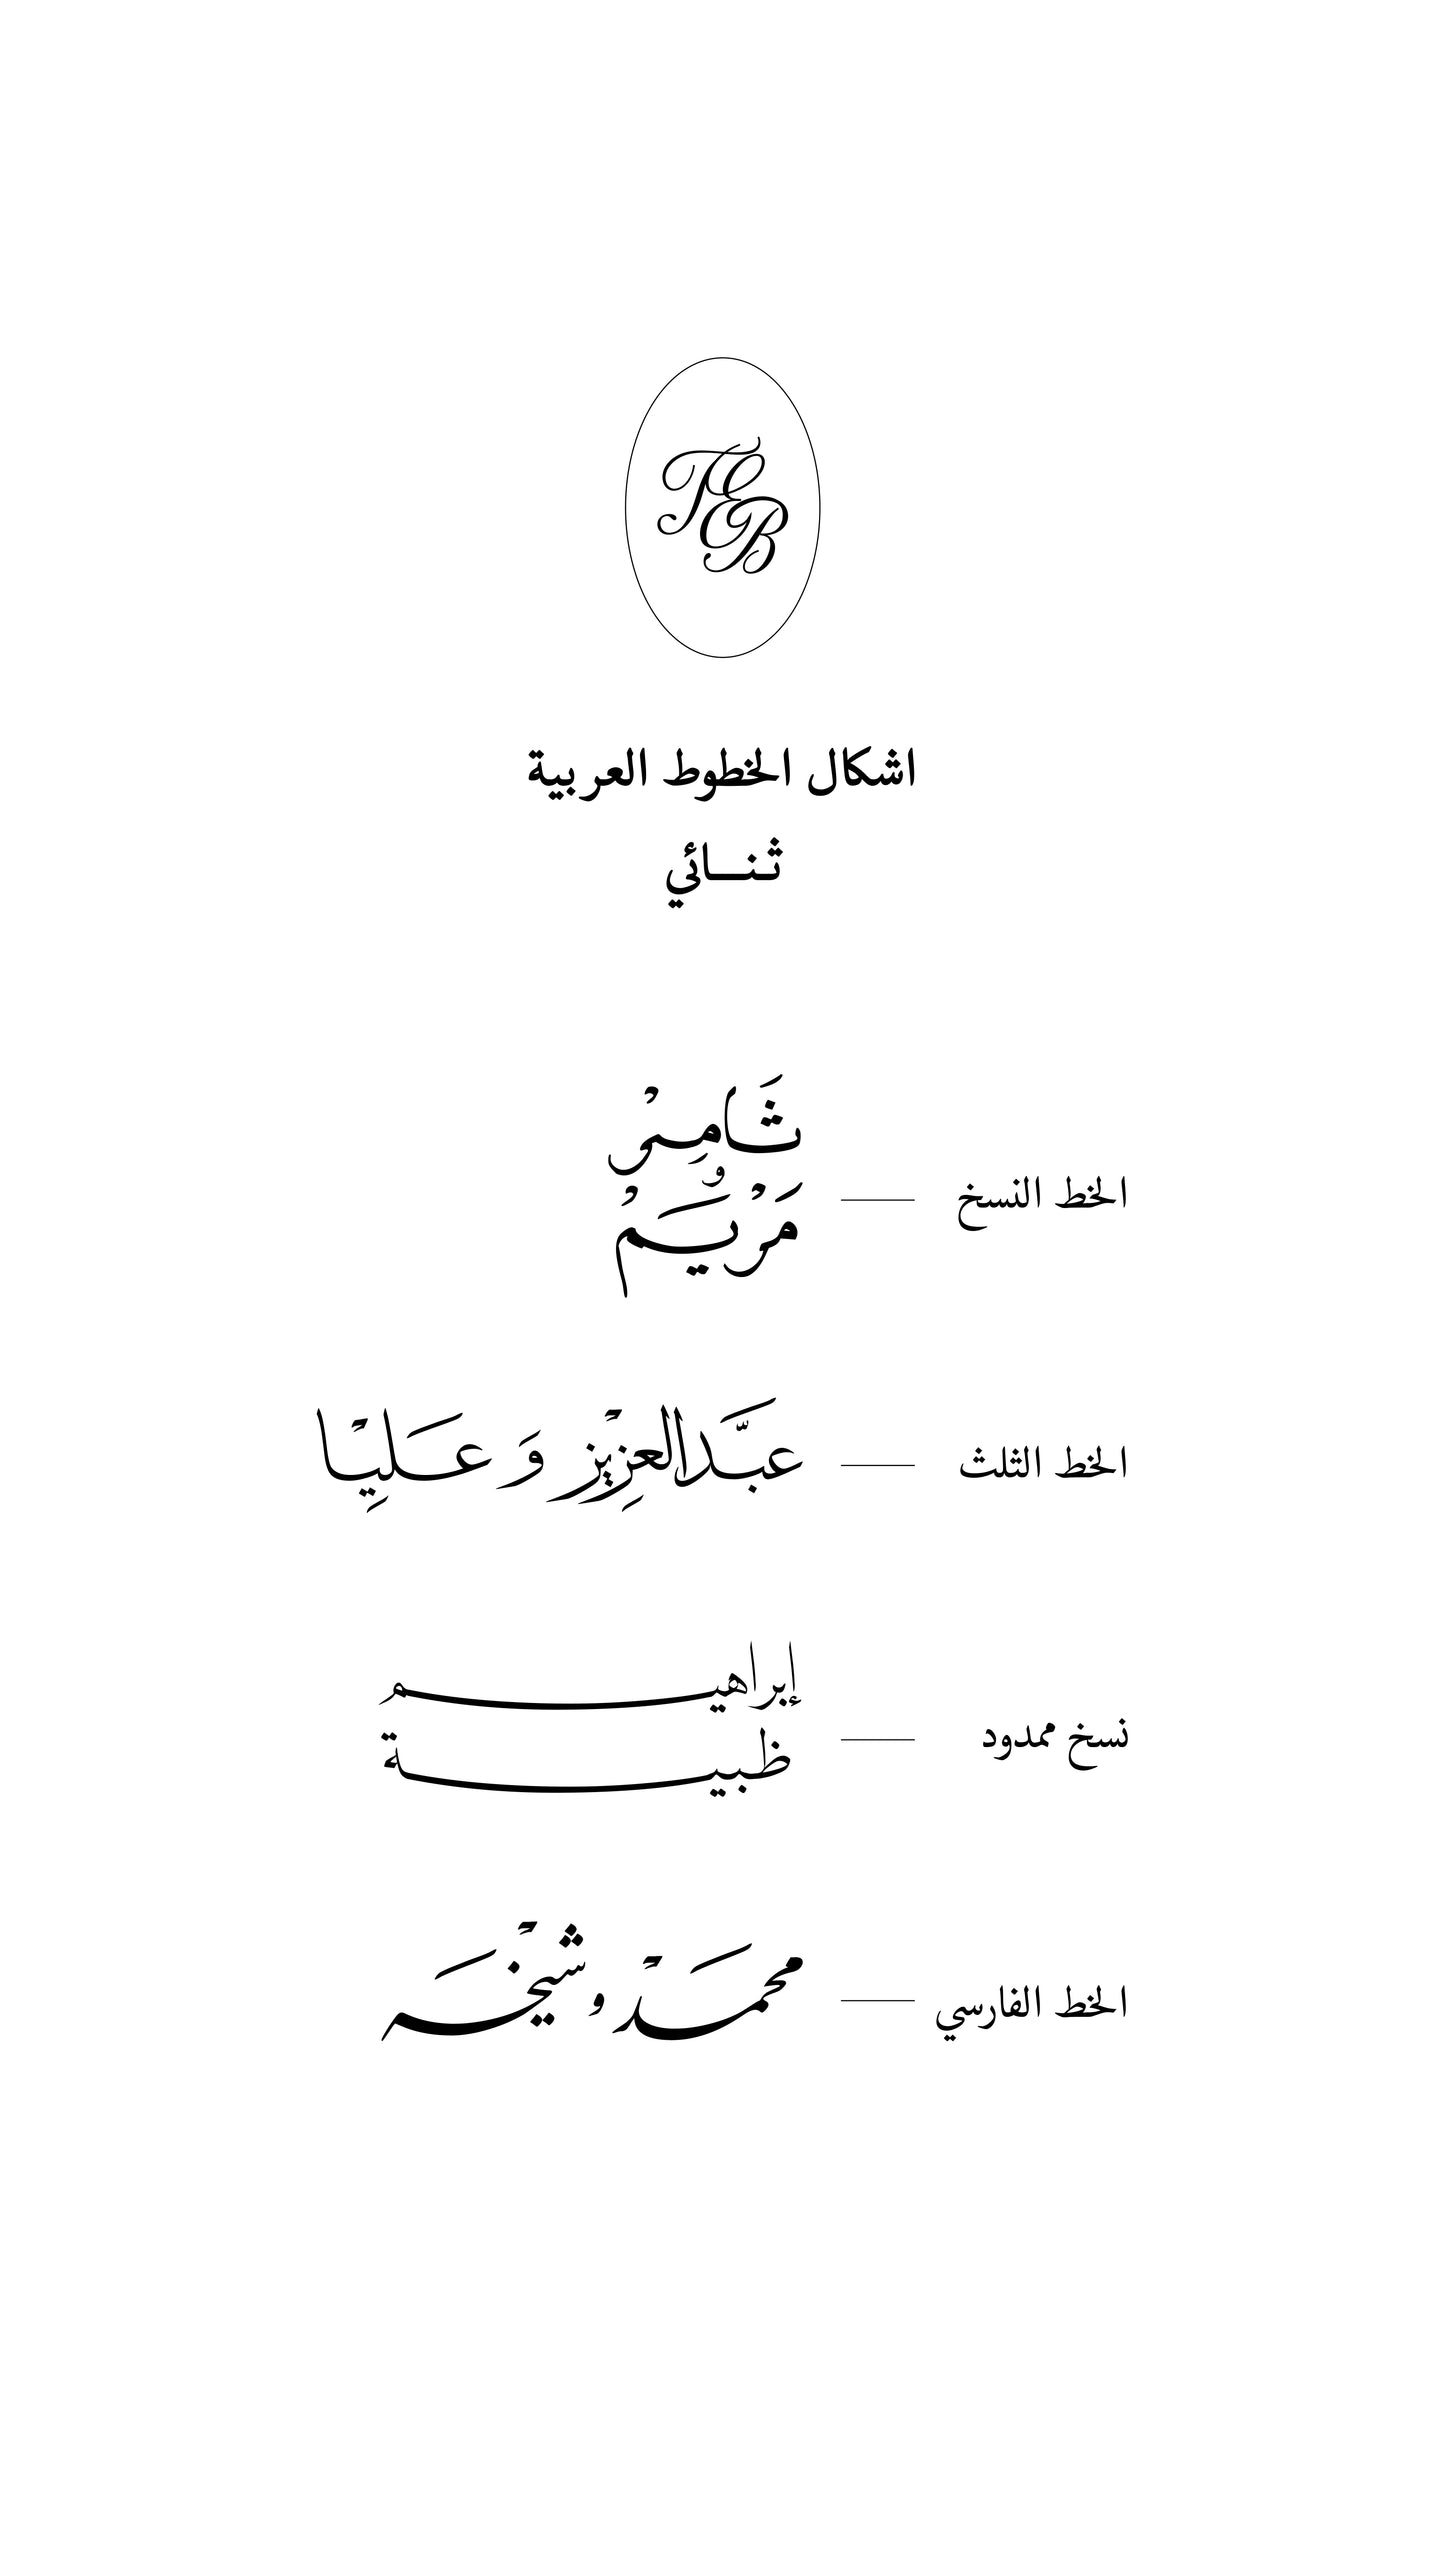 TEB
اشكال الخطوط العربية
ثنـــائي
الخط النسخ
ثَـامِـىْ
و
مَرْيَـمْ
الخط الثلث
عبَّـدالعزِيْز وَ عَـلـيِْـا
نسخ ممدود
إبراهيـــــــم
ظبيـــــــة
الخط الفارسي
محمَـدْ و شيْخَـه